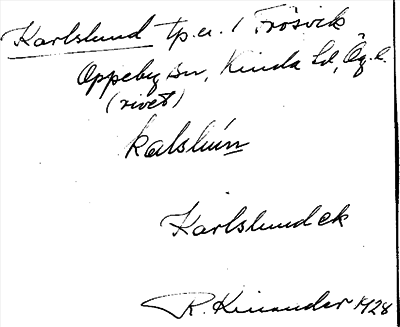 Karlslund tp.u. / Frösvik
Oppeby sn, Kinda hd, Ög.l.
(rivet)
kalslùn
Karlslund ek
R. Kinander 1928